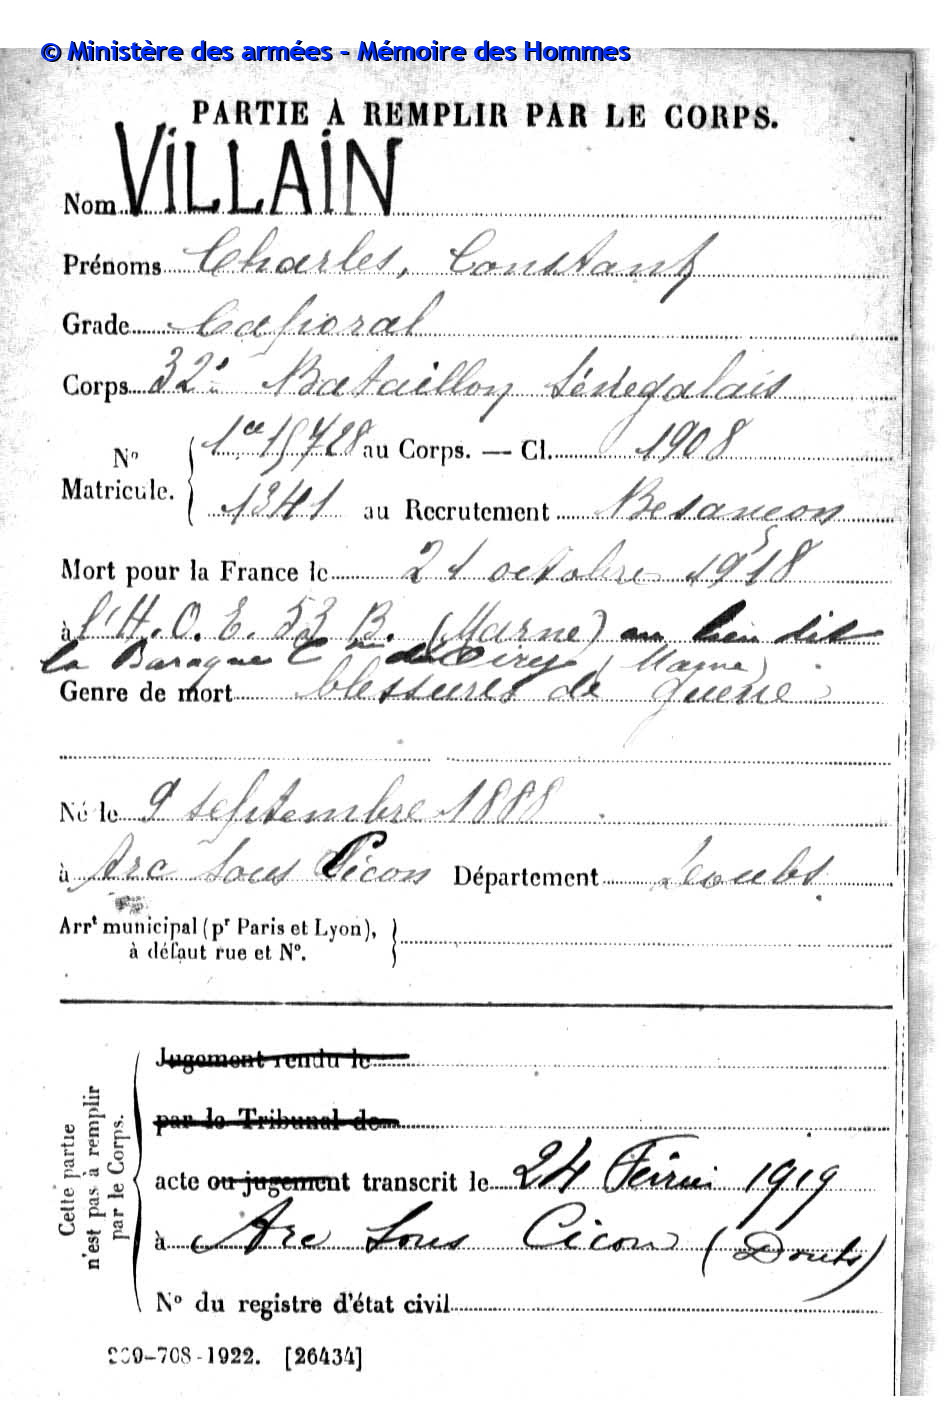 © Ministère des armées - Mémoire des Hommes
PARTIE À REMPLIR PAR LE CORPS.
Nom VILLAIN
Prénoms Charles, Constant
Grade Caporal
Corps 32e Bataillon Sénégalais
N° Matricule. 1ce 15728 au Corps. — Cl. 1908
1341 au Recrutement Besançon
Mort pour la France le 21 octobre 1918
à l'H.O.E. 53 B. (Marne) au lieu dit
la Baraque Cne de Cirey (Marne)
Genre de mort blessures de guerre
Né le 9 septembre 1888
à Arc Sous Cicon Département Doubs
Arrt municipal (pr Paris et Lyon),
à défaut rue et N°.
Cette partie
n'est pas à remplir
par le Corps.
Jugement rendu le
par le Tribunal de
acte ou jugement transcrit le 24 Février 1919
à Arc Sous Cicon (Doubs)
N° du registre d'état civil
-708-1922. [26434]